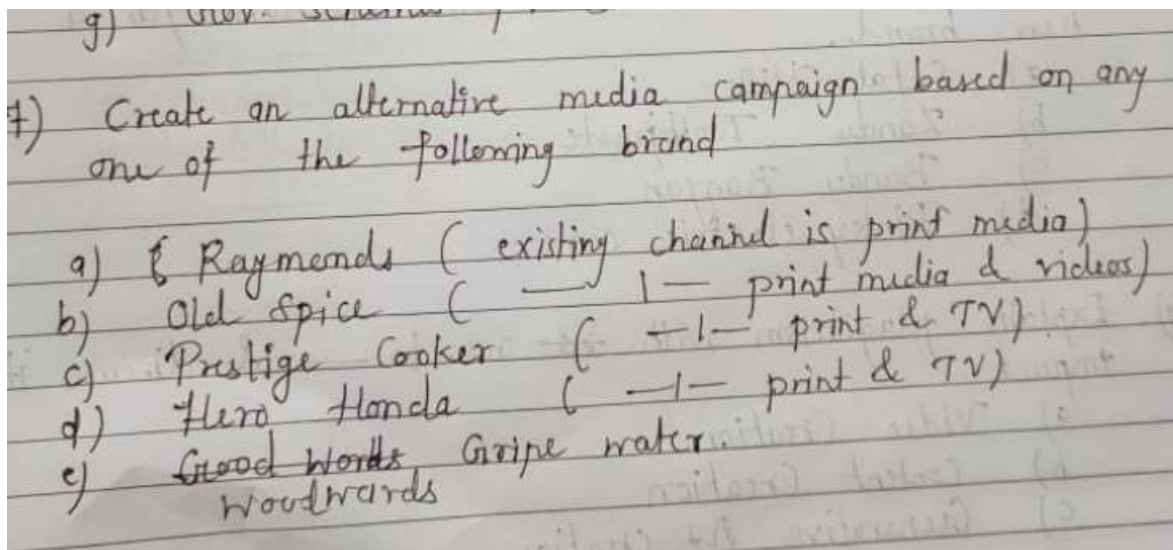 g)
7) Create an alternative media campaign based on any
one of the following brand
a) Raymonds ( existing channel is print media)
b) Old Spice ( — 1 — print media & videos)
c) Prestige Cooker ( —1— print & TV)
d) Hero Honda ( —1— print & TV)
e) Good Words, Gripe water.
Woodwards